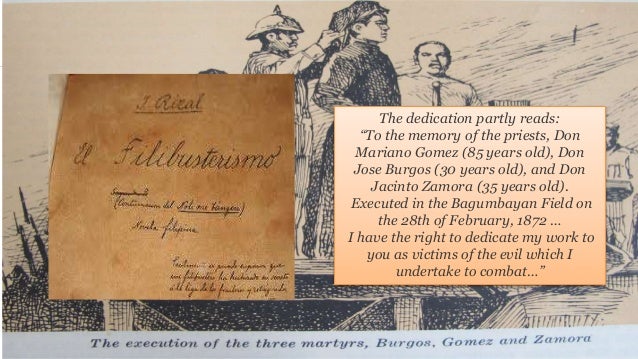 J. Rizal
El Filibusterismo
(Continuacion del Noli me tangere)
Novela filipina
The dedication partly reads:
“To the memory of the priests, Don
Mariano Gomez (85 years old), Don
Jose Burgos (30 years old), and Don
Jacinto Zamora (35 years old).
Executed in the Bagumbayan Field on
the 28th of February, 1872 ...
I have the right to dedicate my work to
you as victims of the evil which I
undertake to combat...”
The execution of the three martyrs, Burgos, Gomez and Zamora